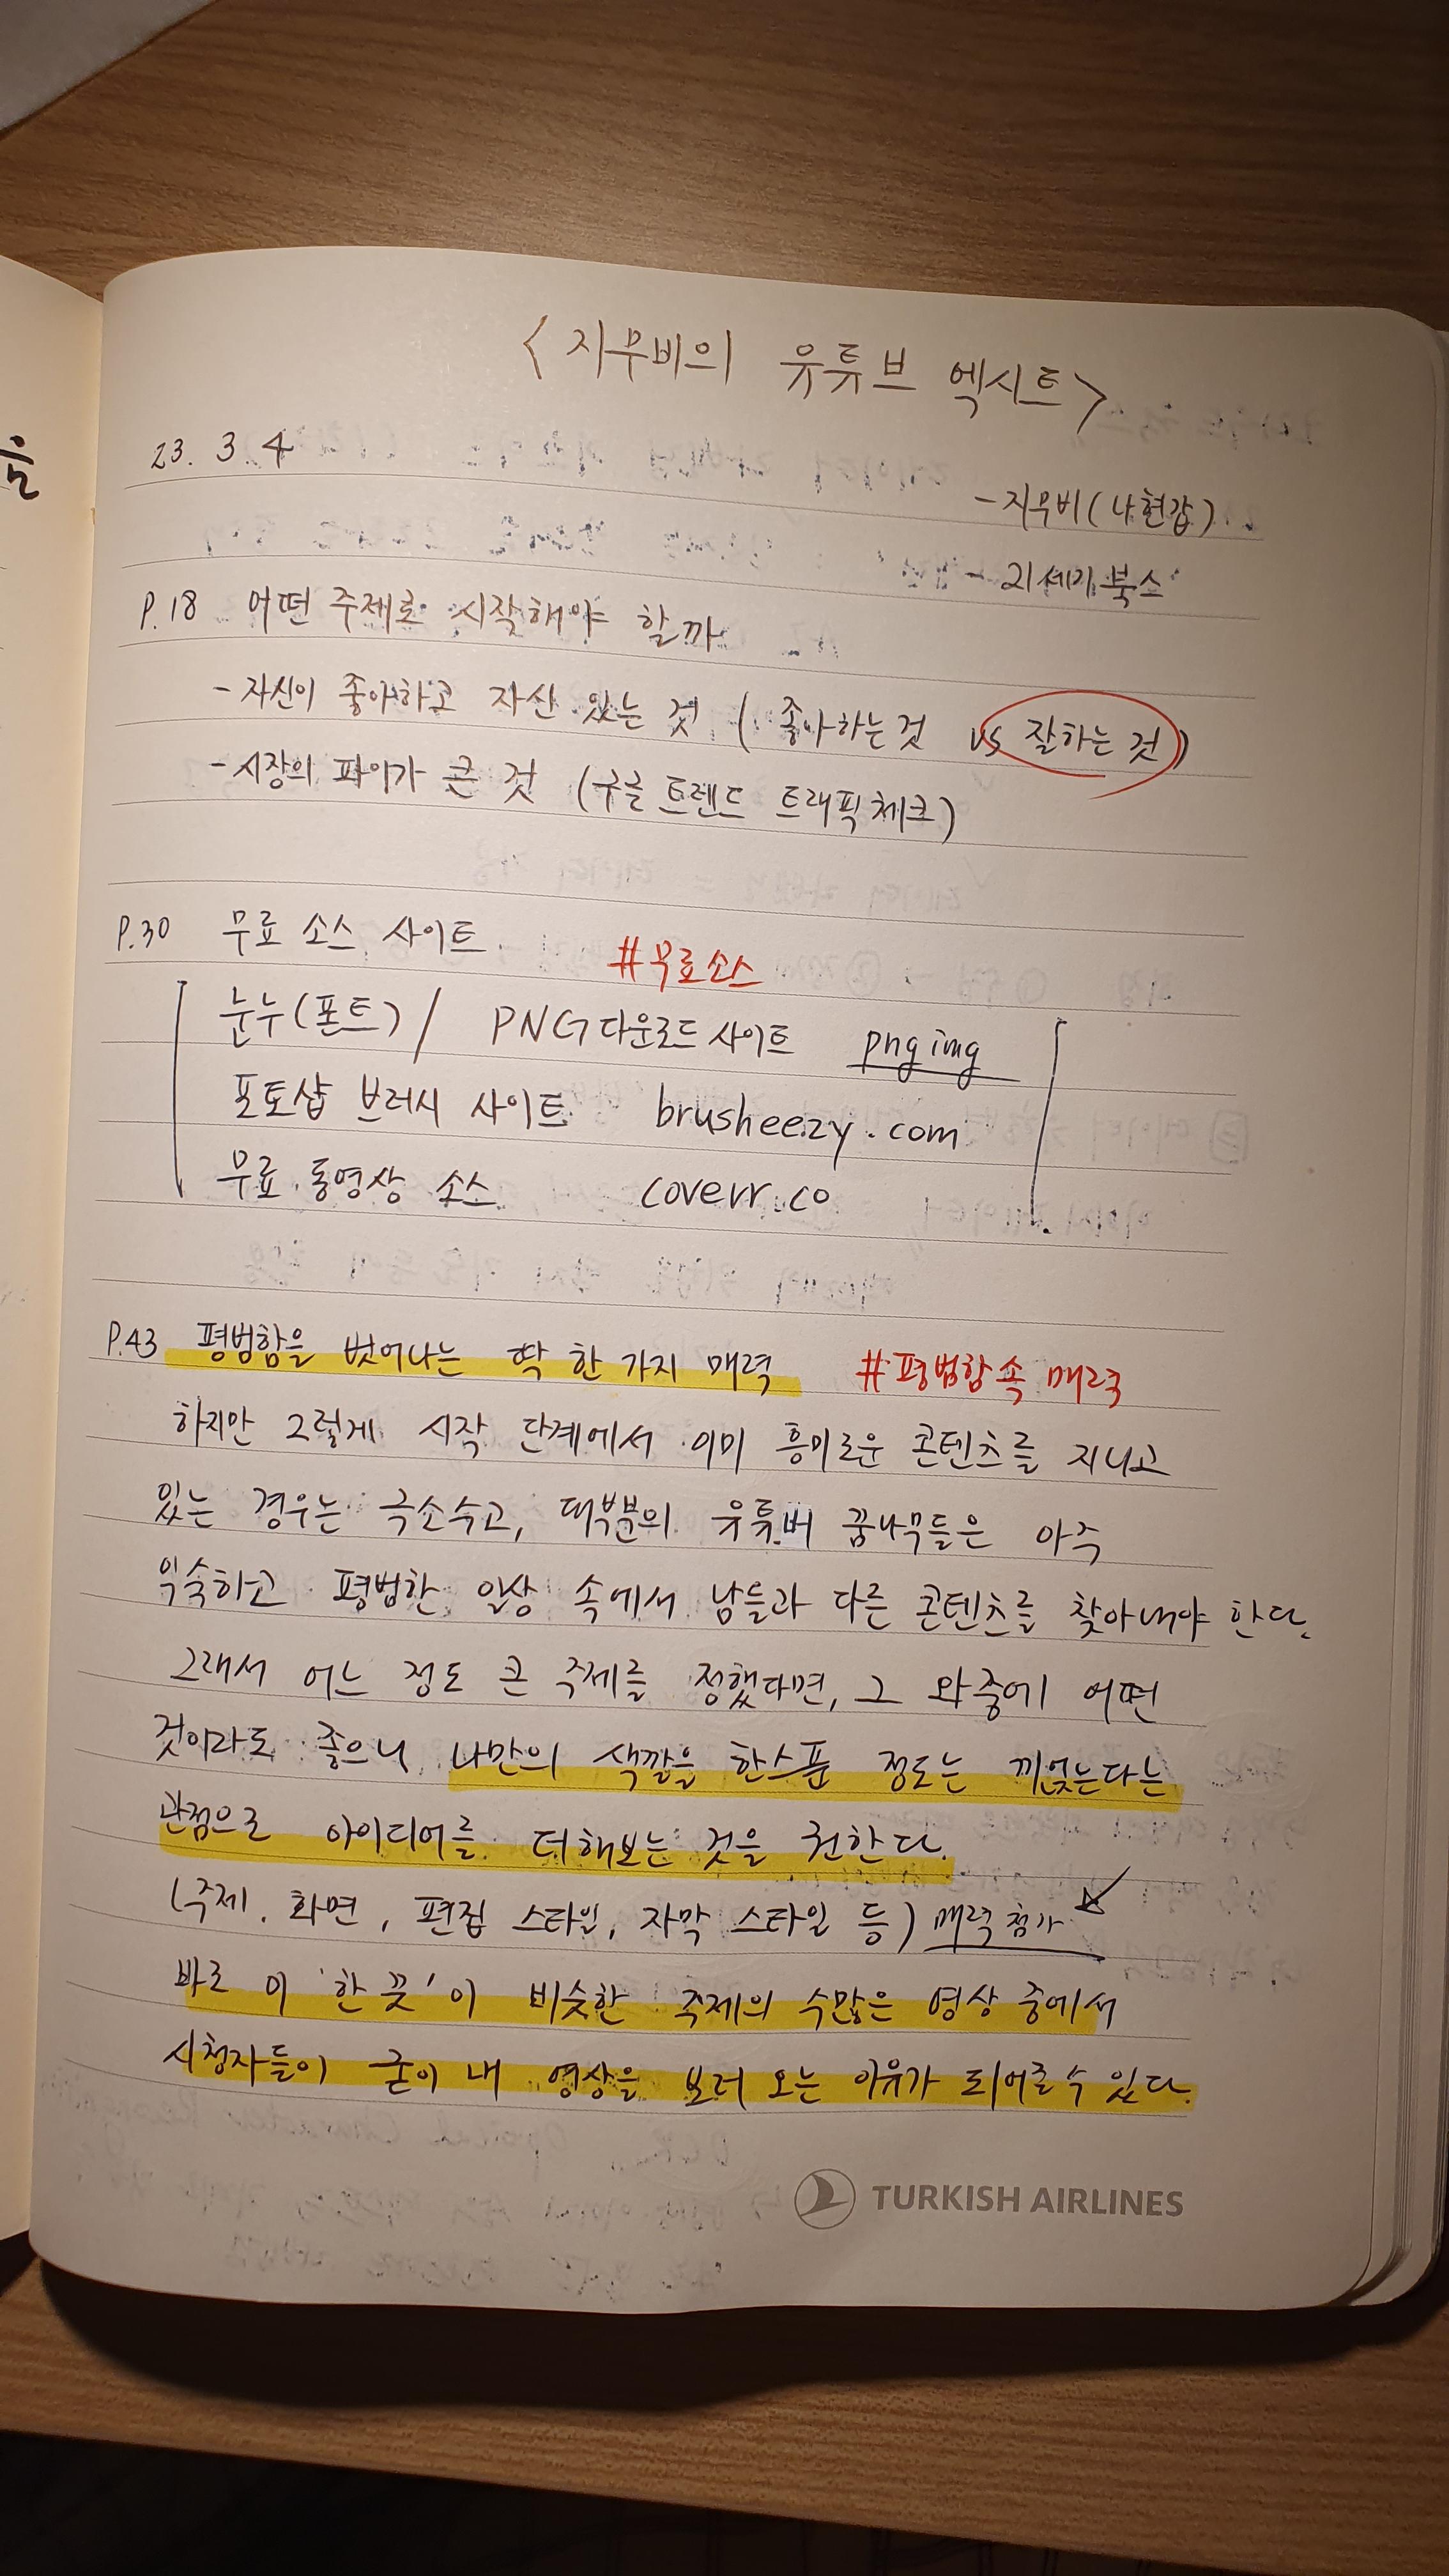 <지무비의 유튜브 엑시트>
23. 3. 4
- 지무비 (나현갑)
- 21세기북스
P.18 어떤 주제로 시작해야 할까
- 자신이 좋아하고 자신 있는 것 ( 좋아하는 것 vs 잘하는 것)
- 시장의 파이가 큰 것 (구글 트렌드 트래픽 체크)
P.30 무료 소스 사이트 #무료소스
눈누(폰트) / PNG 다운로드 사이트 pngimg
포토샵 브러시 사이트 brusheezy.com
무료 동영상 소스 coverr.co
P.43 평범함을 벗어나는 딱 한 가지 매력 #평범함 속 매력
하지만 그렇게 시작 단계에서 이미 흥미로운 콘텐츠를 지니고
있는 경우는 극소수고, 대부분의 유튜버 꿈나무들은 아주
익숙하고 평범한 일상 속에서 남들과 다른 콘텐츠를 찾아내야 한다.
그래서 어느 정도 큰 주제를 정했다면, 그 와중에 어떤
것이라도 좋으니 나만의 색깔을 한스푼 정도는 끼얹는다는
관점으로 아이디어를 더해보는 것을 권한다.
(주제, 화면, 편집 스타일, 자막 스타일 등) 매력 첨가
바로 이 '한 끗'이 비슷한 주제의 수많은 영상 중에서
시청자들이 굳이 내 영상을 보러 오는 이유가 되어줄 수 있다.
TURKISH AIRLINES
을